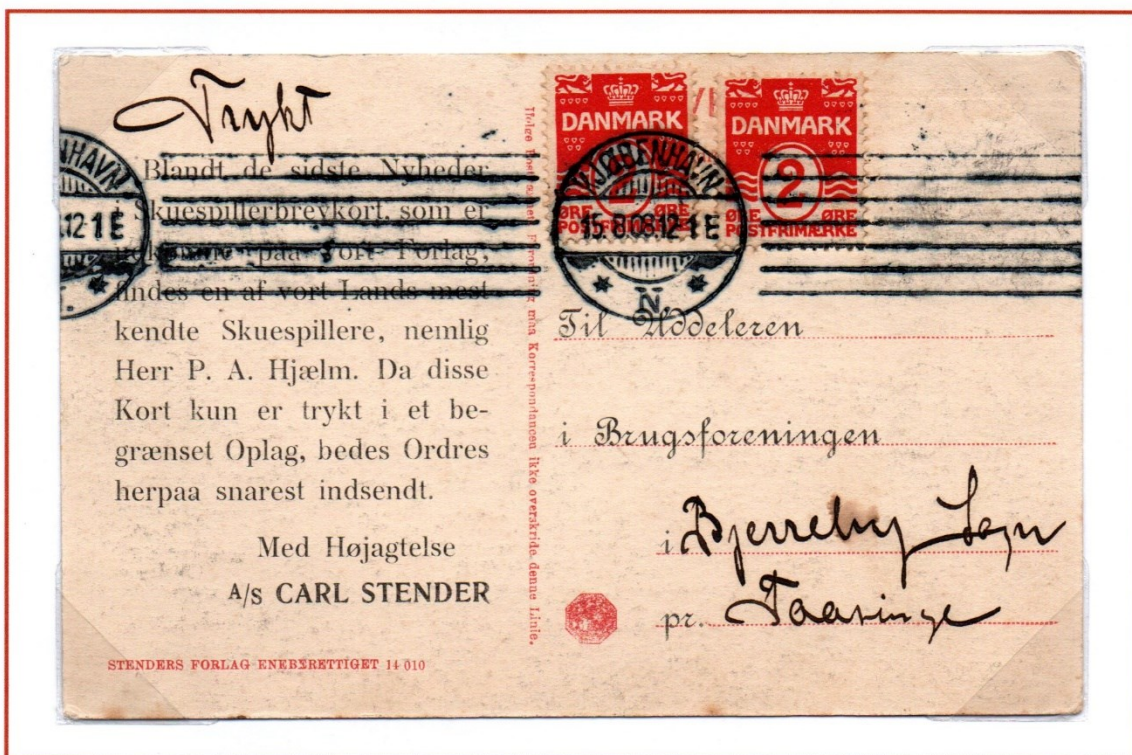 Trykt
Blandt de sidste Nyheder
i Skuespillerbrevkort, som er
paa vort Forlag,
findes en af vort Lands mest
kendte Skuespillere, nemlig
Herr P. A. Hjælm. Da disse
Kort kun er trykt i et be-
grænset Oplag, bedes Ordres
herpaa snarest indsendt.
Med Højagtelse
A/S CARL STENDER
STENDERS FORLAG ENEBERETTIGET 14 010
maa Korrespondancen ikke overskride denne Linie.
DANMARK
2
ØRE ØRE
POSTFRIMÆRKE
DANMARK
2
ØRE ØRE
POSTFRIMÆRKE
HAVN
.12 1 E
KJØBENHAVN
15.8.08.12-1 E
N.
Til Uddeleren
i Brugsforeningen
i Bjerreby Sogn
pr. Taasinge